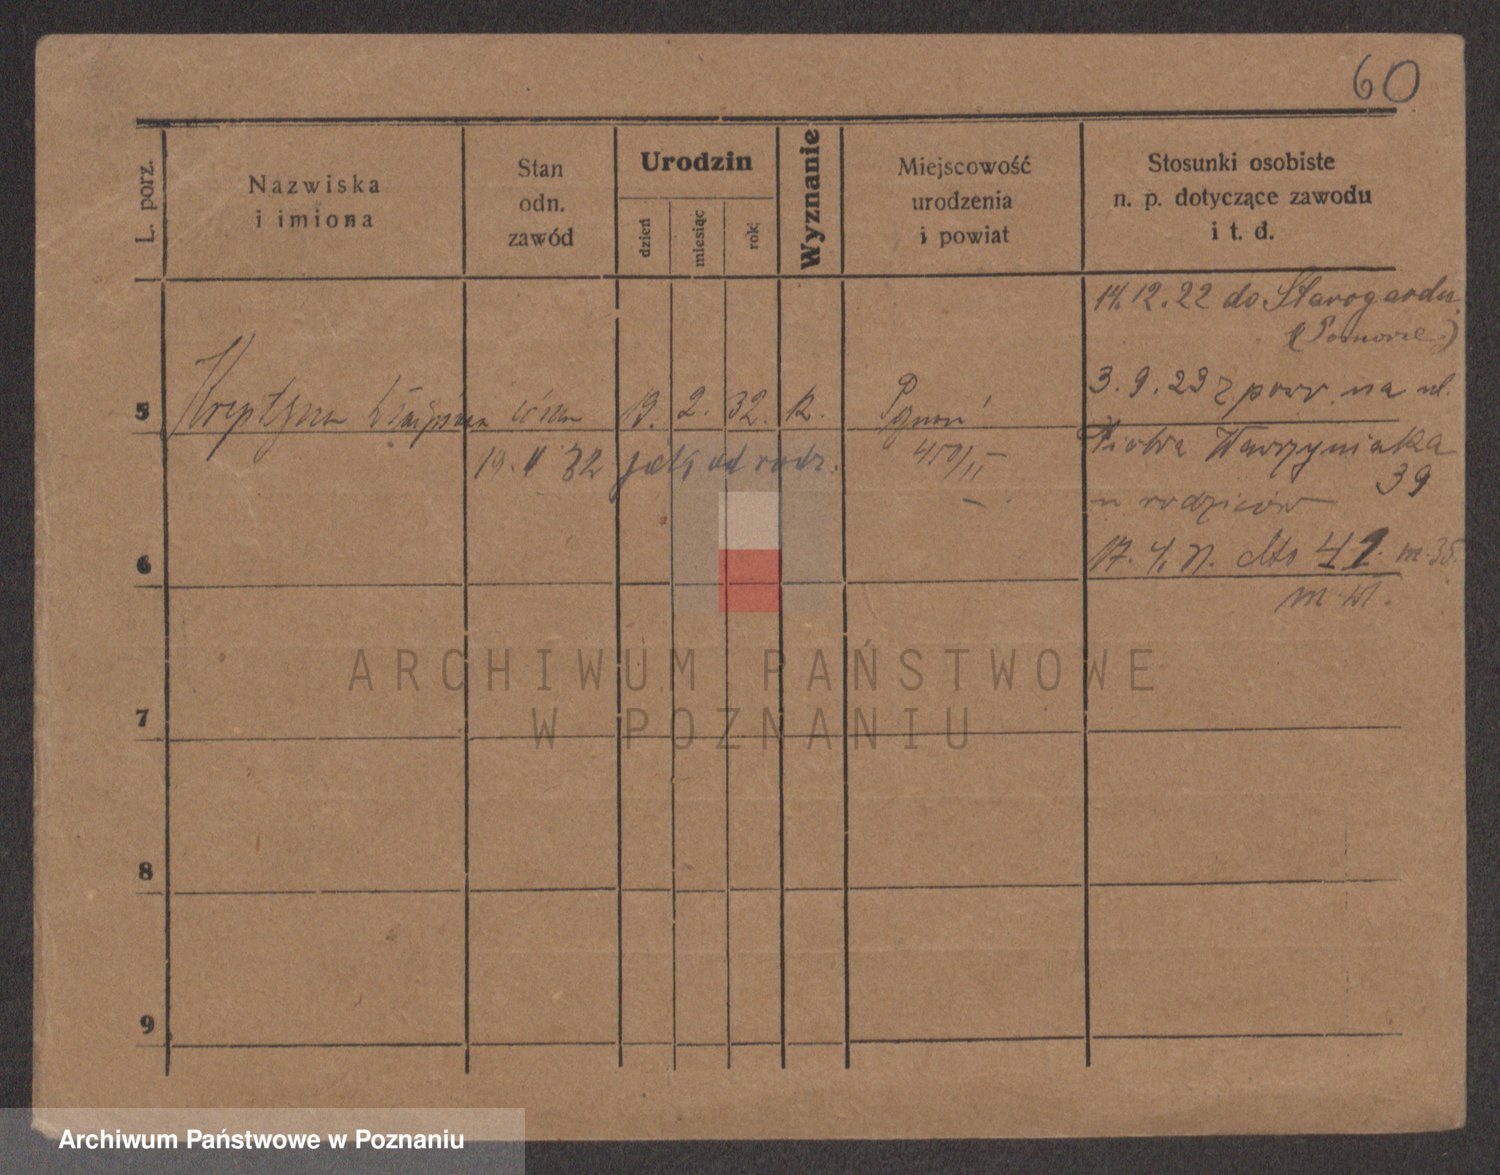 60
L. porz.
Nazwiska
i imiona
Stan
odn.
zawód
Urodzin
dzień
miesiąc
rok
Wyznanie
Miejscowość
urodzenia
i powiat
Stosunki osobiste
n. p. dotyczące zawodu
i t. d.
14.12.22 do Starogardu
(Pomorze)
3.9.23 z powr. na ul.
5
19. 2. 32. k.
Piotra Wawrzyniaka
39
19. II 32 jak od rodz.
u rodziców
6
17. dto 41. m. 35
7
8
9
ARCHIWUM PAŃSTWOWE
W POZNANIU
Archiwum Państwowe w Poznaniu